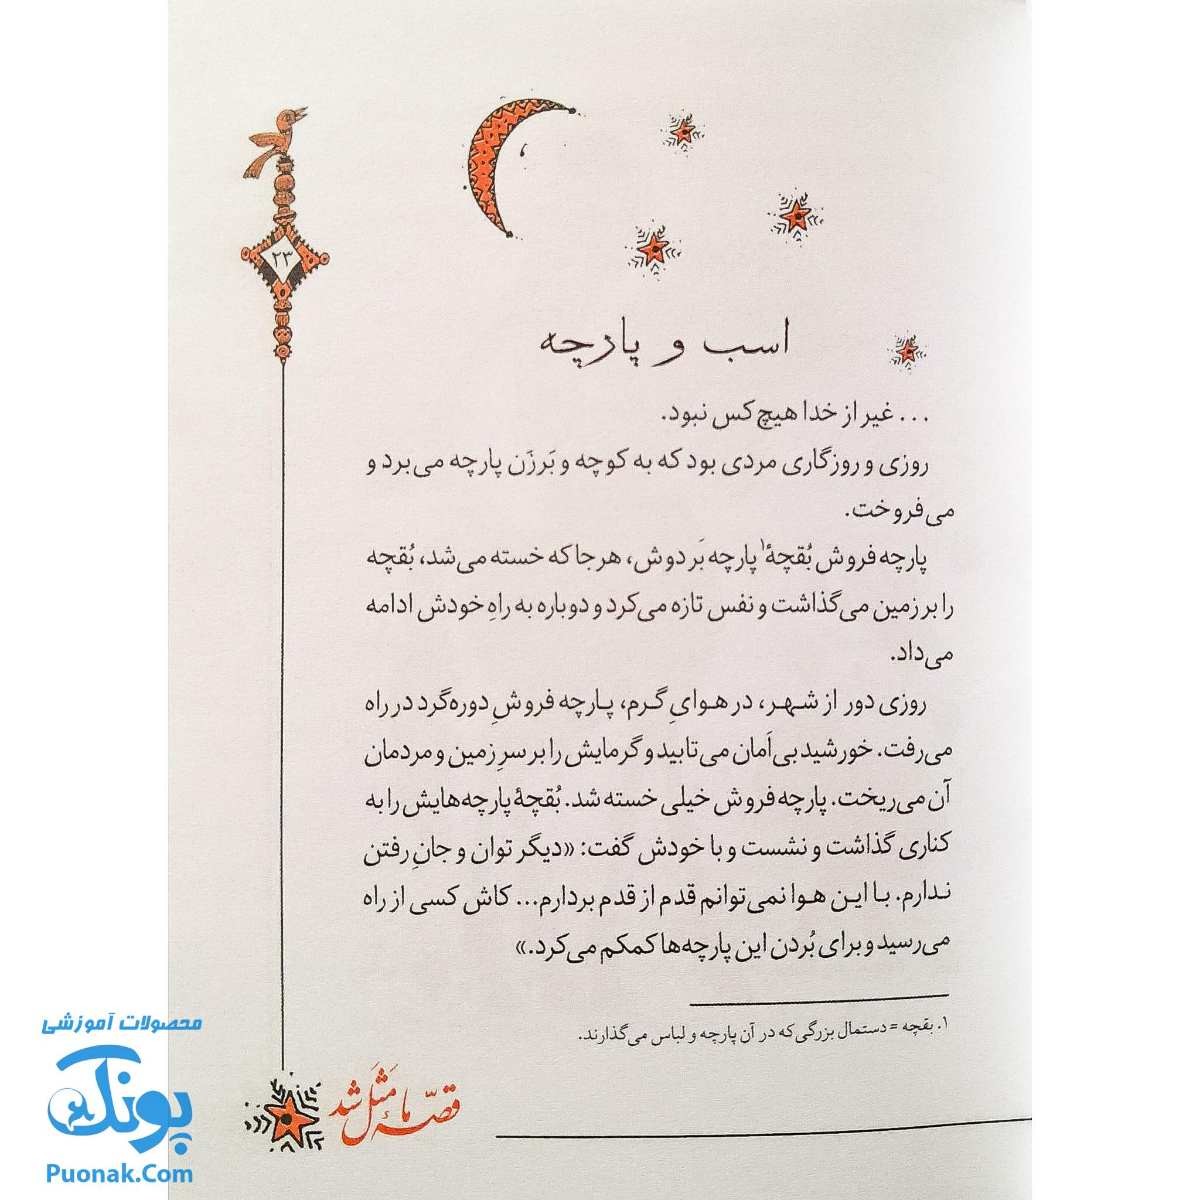 ۲۳
اسب و پارچه
... غیر از خدا هیچ‌کس نبود.
روزی و روزگاری مردی بود که به کوچه و بَرزَن پارچه می‌برد و
می‌فروخت.
پارچه فروش بُقچهٔ۱ پارچه بَر دوش، هرجا که خسته می‌شد، بُقچه
را بر زمین می‌گذاشت و نفس تازه می‌کرد و دوباره به راهِ خودش ادامه
می‌داد.
روزی دور از شهر، در هوایِ گرم، پارچه فروشِ دوره‌گرد در راه
می‌رفت. خورشید بی‌اَمان می‌تابید و گرمایش را بر سرِ زمین و مردمان
آن می‌ریخت. پارچه‌فروش خیلی خسته شد. بُقچهٔ پارچه‌هایش را به
کناری گذاشت و نشست و با خودش گفت: «دیگر توان و جانِ رفتن
ندارم. با این هوا نمی‌توانم قدم از قدم بردارم... کاش کسی از راه
می‌رسید و برای بُردن این پارچه‌ها کمکم می‌کرد.»
۱. بقچه = دستمال بزرگی که در آن پارچه و لباس می‌گذارند.
قصّه ما مَثَل شد
محصولات آموزشی
پونک
Puonak.Com